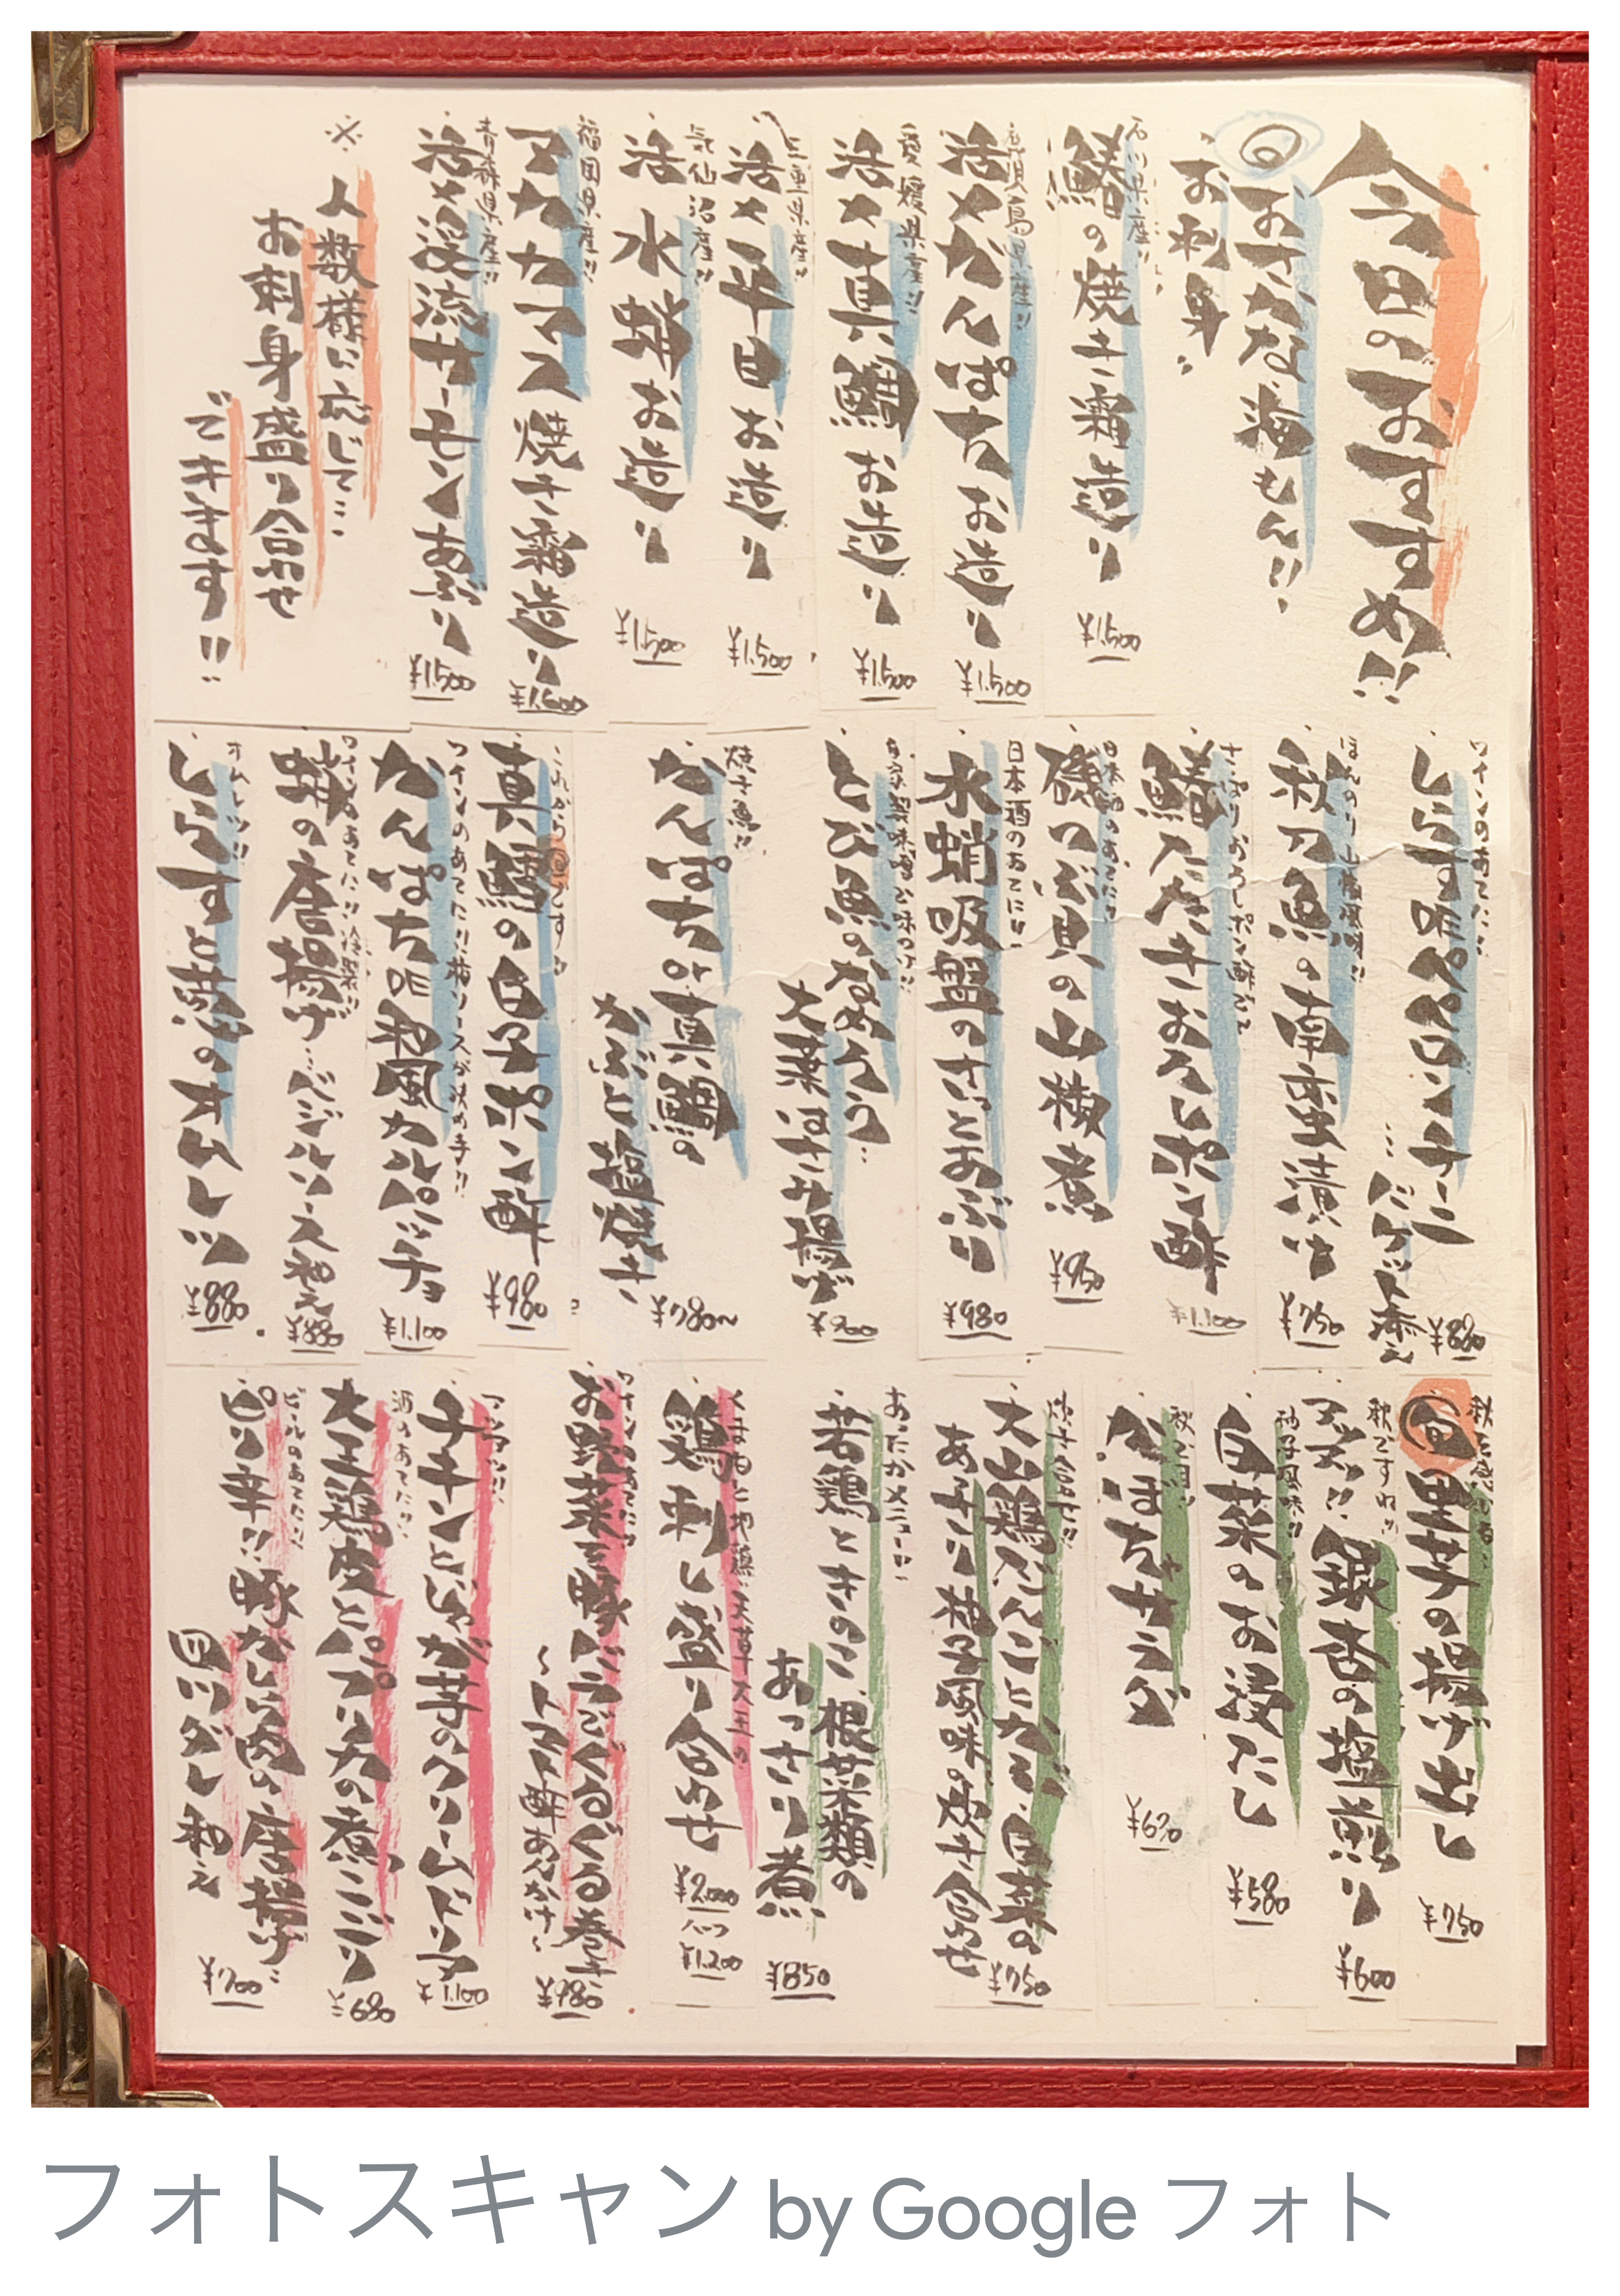 今日のおすすめ!!
旬 おさかな海もん!!
お刺身
石川県産!!
鰆の焼き霜造り ¥1,500
鹿児島県産!!
活〆かんぱちお造り ¥1,500
愛媛県産!!
活〆真鯛お造り ¥1,500
三重県産!!
活〆平目お造り ¥1,500
気仙沼産!!
活水蛸お造り ¥1,500
福岡県産!!
マカカマス焼き霜造り
青森県産!!
活〆深浦サーモンあぶり ¥1,500
※人数様に応じて…
お刺身盛り合わせ
できます!!
ワインのあてに!!
しらすのペペロンチーニ
…バゲット添え ¥880
ほんのり生姜風味!!
秋刀魚の南蛮漬け ¥750
さっぱりおろしポン酢で
鰆のたたきおろしポン酢 ¥1,100
日本酒のあてに!!
磯つぶ貝の山椒煮 ¥950
日本酒のあてに!!
水蛸吸盤のさっとあぶり ¥980
自家製味噌で味つけ!!
とび魚のなめろう…
大葉はさみ揚げ ¥900
焼き魚!!
かんぱちか真鯛の
かぶと塩焼き ¥780~
これから旬です!!
真鱈の白子ポン酢 ¥980
ワインのあてに!!梅ソースが決め手!!
かんぱちの和風カルパッチョ ¥1,100
ワインのあてに!!冷製!!
蛸の唐揚げ…バジルソース和え ¥880
オムレツ!!
しらすと葱のオムレツ ¥880
秋を感じる…
旬 里芋の揚げ出し ¥750
秋ですね!!
銀杏の塩煎り ¥600
柚子風味!!
白菜のお浸し ¥580
秋が旬!!
かぼちゃサラダ ¥670
炊き合わせ!!
大山鶏だんごとかぶ、白菜の
あっさり柚子風味の炊き合わせ ¥750
あったかメニュー!!
若鶏ときのこ、根菜類の
あっさり煮 ¥850
くまもと地鶏…天草大王の
鶏刺し盛り合わせ ¥2,000
ハーフ ¥1,200
ワインのあてに!!
お野菜を豚バラでぐるぐる巻き
~トマト酢あんかけ~ ¥980
アツアツ!!
チキンとじゃが芋のクリームドリア ¥1,100
酒のあてに!!
大王鶏皮とパプリカの煮こごり ¥680
ビールのあてに!!
ピリ辛!!豚かしら肉の唐揚げ…
四川ダレ和え ¥700
フォトスキャン by Google フォト